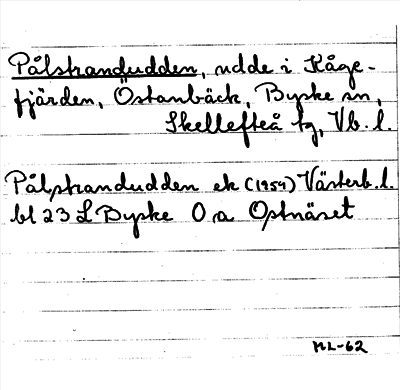 Pålstrandudden, udde i Kåge-
fjärden, Östanbäck, Byske sn,
Skellefteå tg, Vb. l.
Pålstrandudden ek (1959) Västerb. l.
bl 23 L Byske O a Ostnäset
ML-62